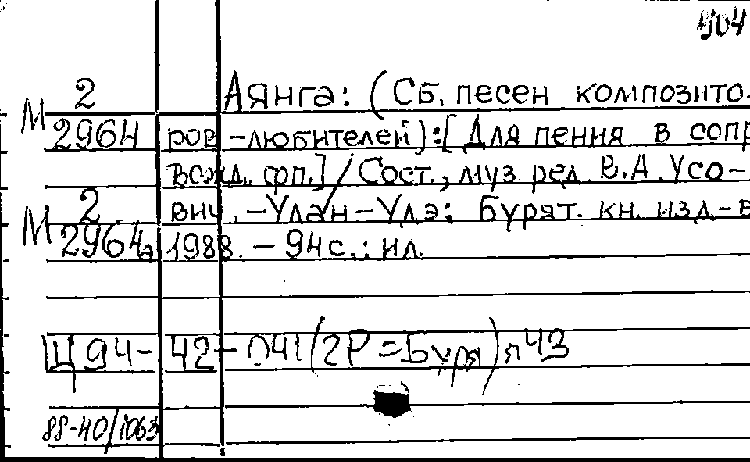 904
М 2 Аянга: (Сб. песен композито-
2964 ров-любителей):[Для пения в сопр
вожд. фп.]/Сост., муз ред В.А.Усо-
М 2 вич.-Улан-Удэ: Бурят. кн. изд-в
2964а 1988. - 94с.: ил.
Щ94-42-041(2Р=Буря)я43
88-40/1063